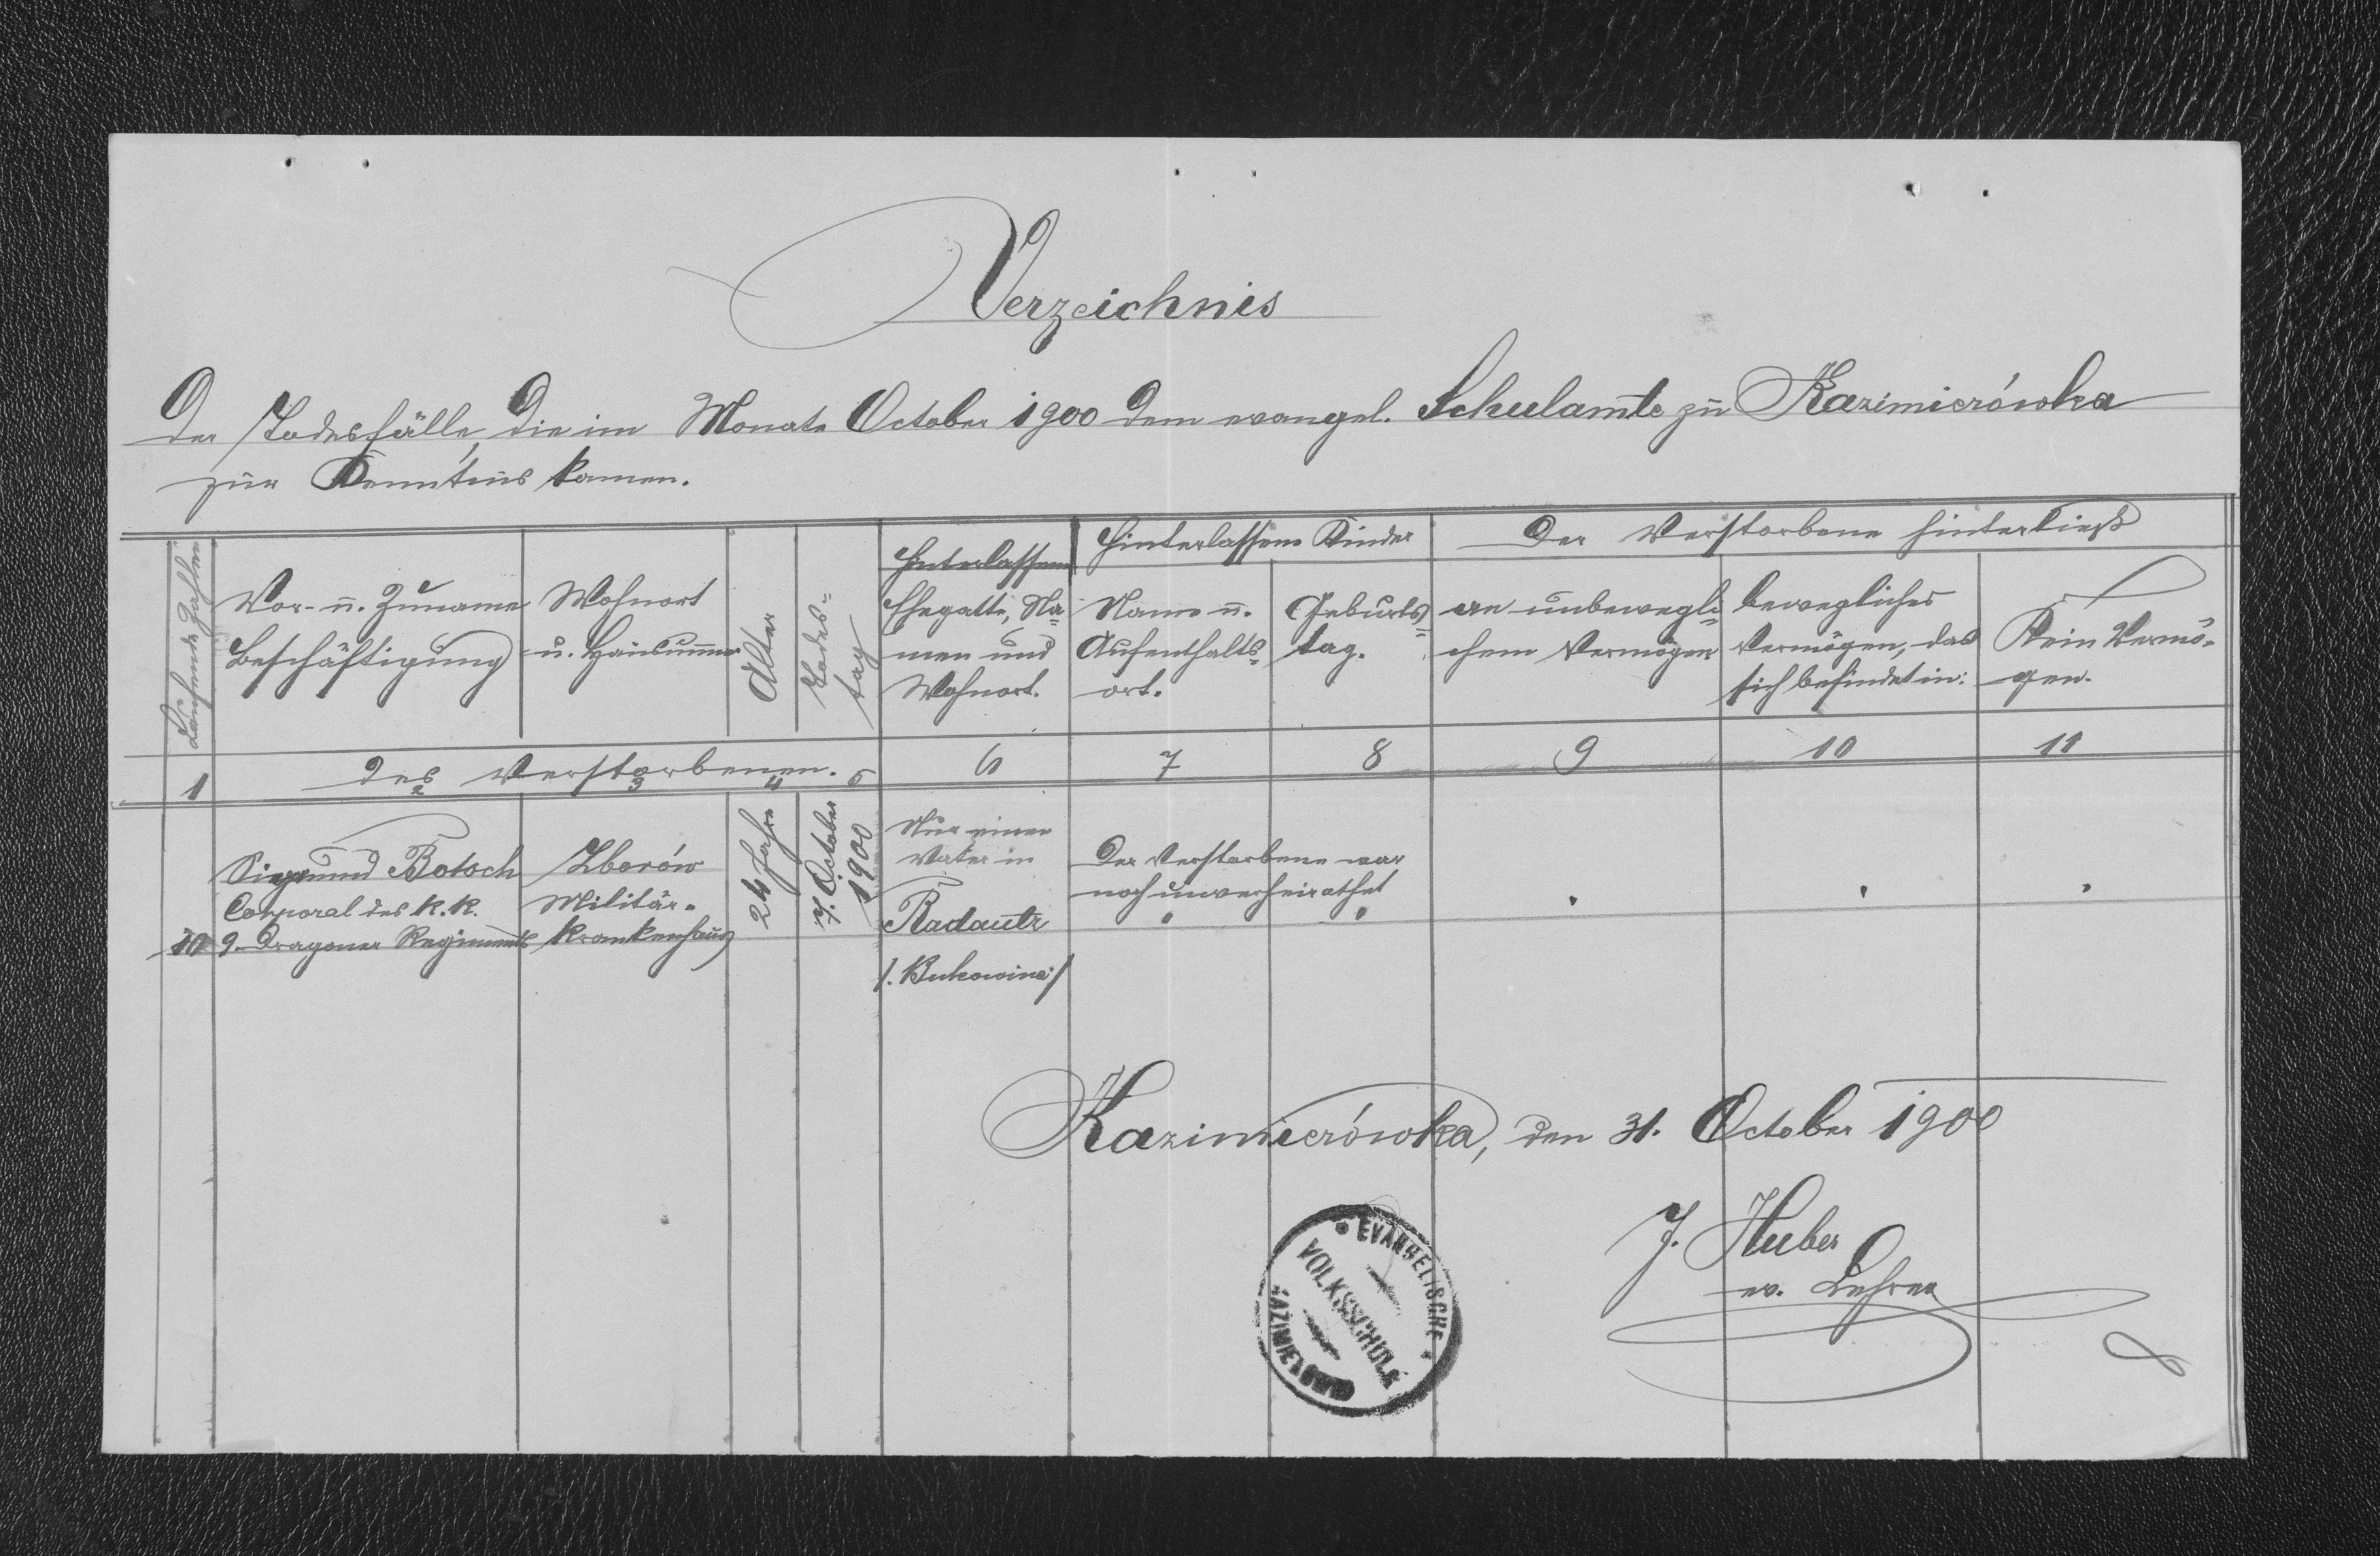 Verzeichnis
Der Todesfälle, die im Monate October 1900 dem evangel. Schulamte zu Kazimierówka
zur Kenntnis kamen.
Laufende Zahlen
Vor- u. Zuname
Beschäftigung
Wohnort
u. Hausnummer
Alter
Todes-
tag
des Verstorbenen.
Hinterlassene
Ehegatte, Na-
men und
Wohnort.
Hinterlassene Kinder
Name u.
Aufenthalts-
ort.
Geburts-
tag.
Der Verstorbene hinterließ
an unbewegli-
chem Vermögen
bewegliches
Vermögen, das
sich befindet in:
Kein Vermö-
gen.
1 2 3 4 5 6 7 8 9 10 11
Siegmund Botsch
Corporal des k.k.
9. Dragoner Regiments
Zborów
Militär-
krankenhaus
24 Jahre
7. October
1900
Nur einen
Vater in
Radautz
/:Bukowina:/
Der Verstorbene war
noch unverheirathet
Kazimierówka, den 31. October 1900
J. Huber
ev. Lehrer
EVANGELISCHE
VOLKSSCHULE